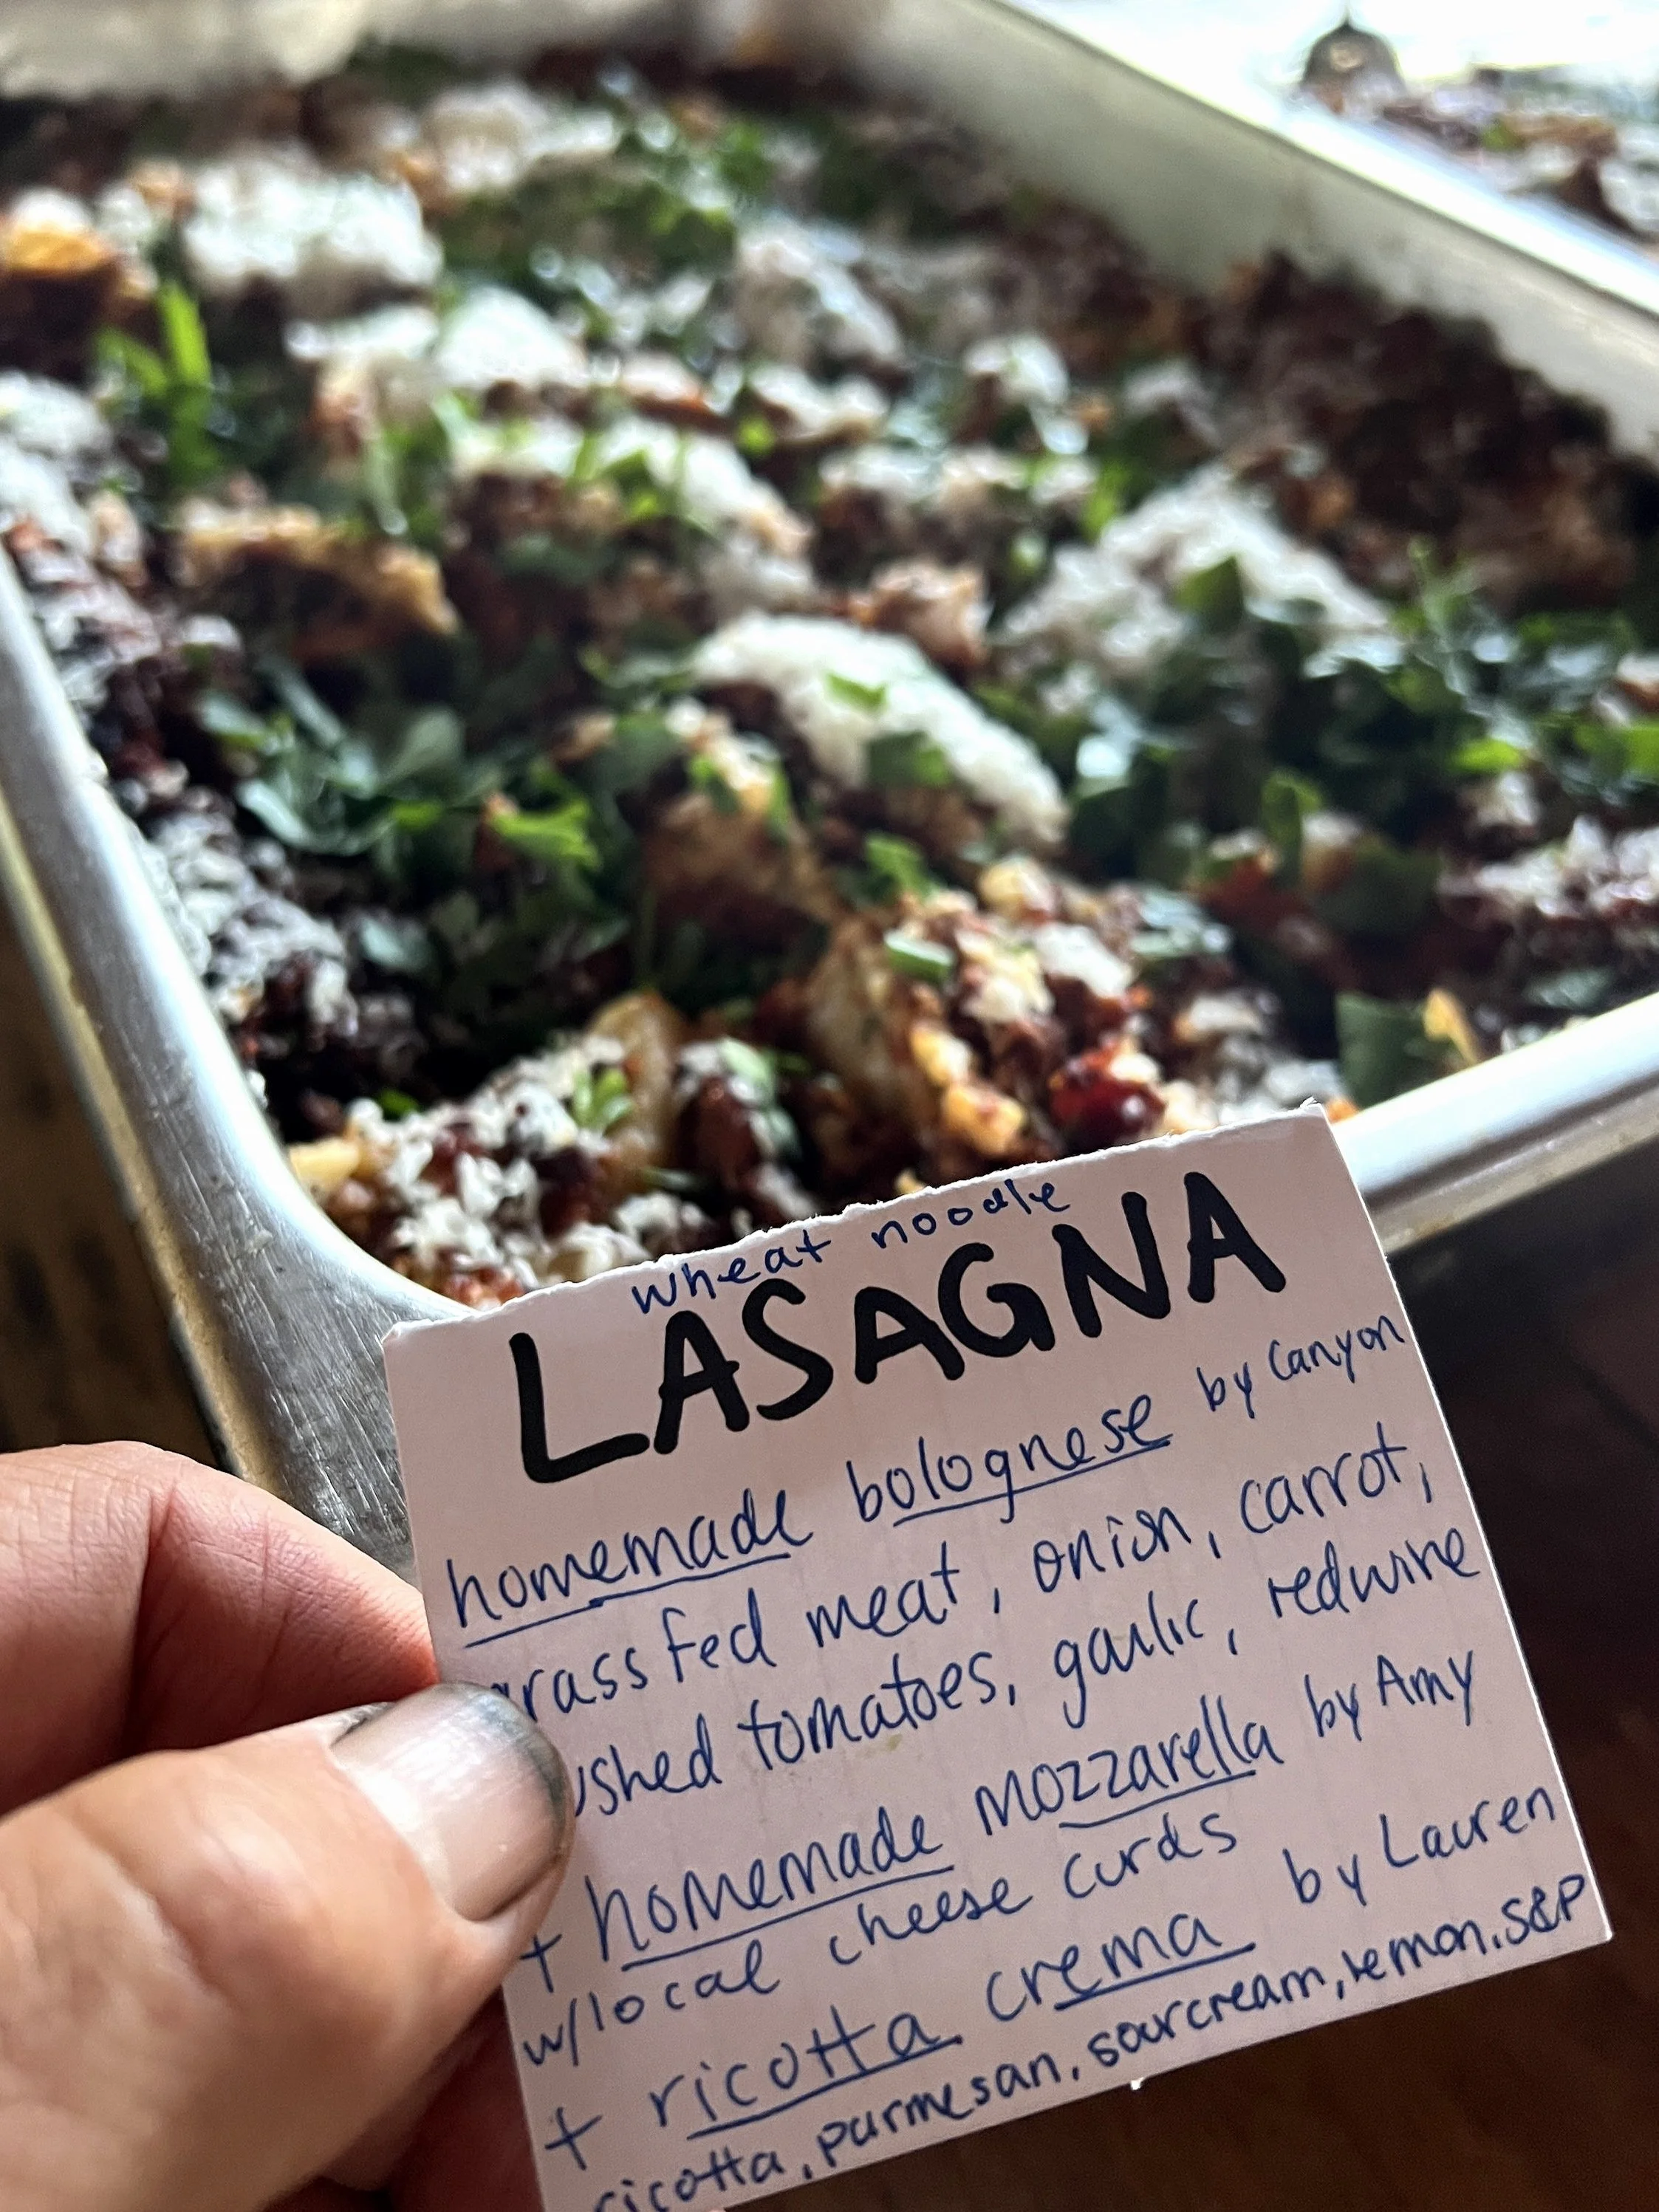 wheat noodle
LASAGNA
homemade bolognese by Canyon
grass fed meat, onion, carrot,
ushed tomatoes, garlic, redwine
+ homemade mozzarella by Amy
w/local cheese curds
+ ricotta crema by Lauren
ricotta, parmesan, sourcream, lemon, S&P